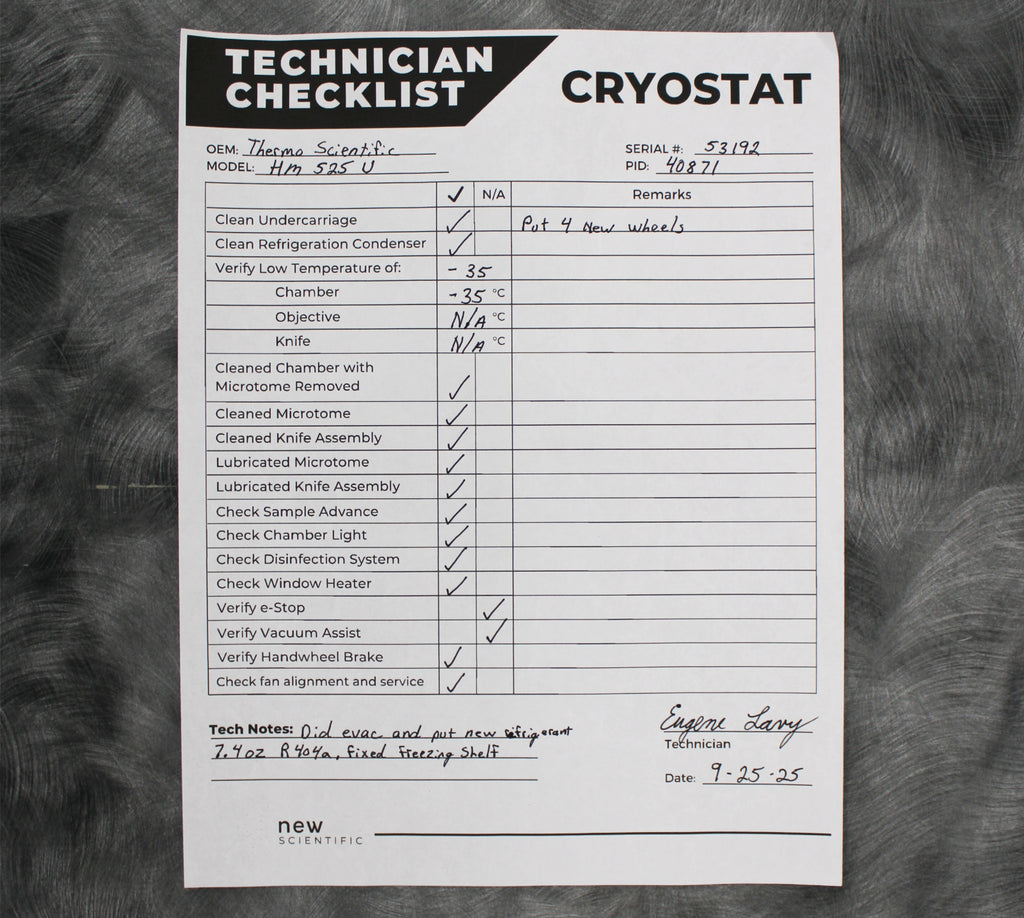 TECHNICIAN
CHECKLIST
CRYOSTAT
OEM: Thermo Scientific
MODEL: Hm 525 U
SERIAL #: 53192
PID: 40871
✓ N/A Remarks
Clean Undercarriage ✓ Put 4 New wheels
Clean Refrigeration Condenser ✓
Verify Low Temperature of: -35
Chamber -35 °C
Objective N/A °C
Knife N/A °C
Cleaned Chamber with
Microtome Removed ✓
Cleaned Microtome ✓
Cleaned Knife Assembly ✓
Lubricated Microtome ✓
Lubricated Knife Assembly ✓
Check Sample Advance ✓
Check Chamber Light ✓
Check Disinfection System ✓
Check Window Heater ✓
Verify e-Stop ✓
Verify Vacuum Assist ✓
Verify Handwheel Brake ✓
Check fan alignment and service ✓
Tech Notes: Did evac and put new refrigerant
7.4oz R404a, fixed freezing shelf
Eugene Lavy
Technician
Date: 9-25-25
new
SCIENTIFIC